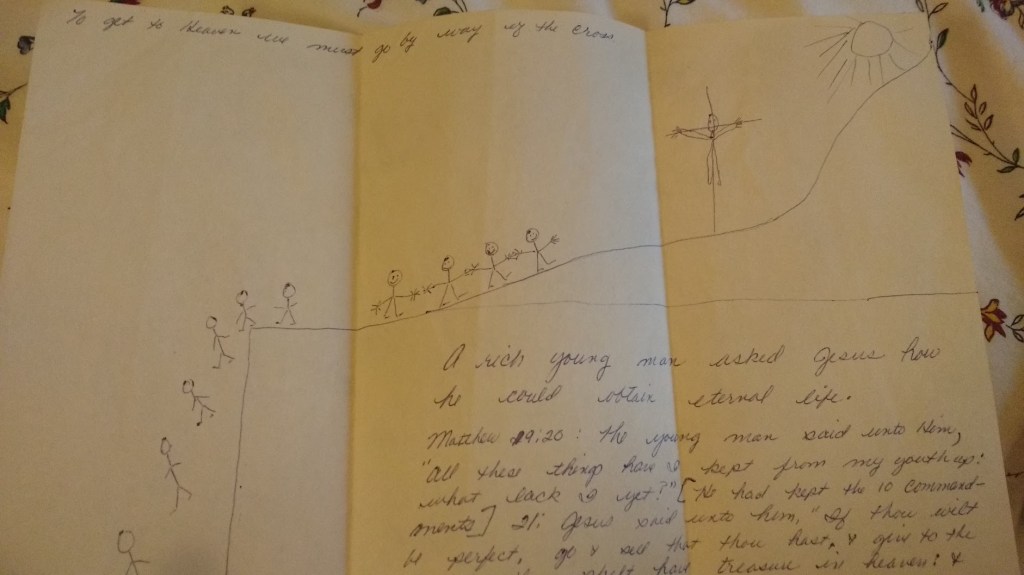 To get to Heaven we must go by way of the Cross
A rich young man asked Jesus how
he could obtain eternal life.
Matthew 19:20: The young man said unto Him,
"All these things have I kept from my youth up:
what lack I yet?" [He had kept the 10 command-
ments] 21: Jesus said unto him, "If thou wilt
be perfect, go & sell that thou hast, & give to the
shalt have treasure in heaven: &